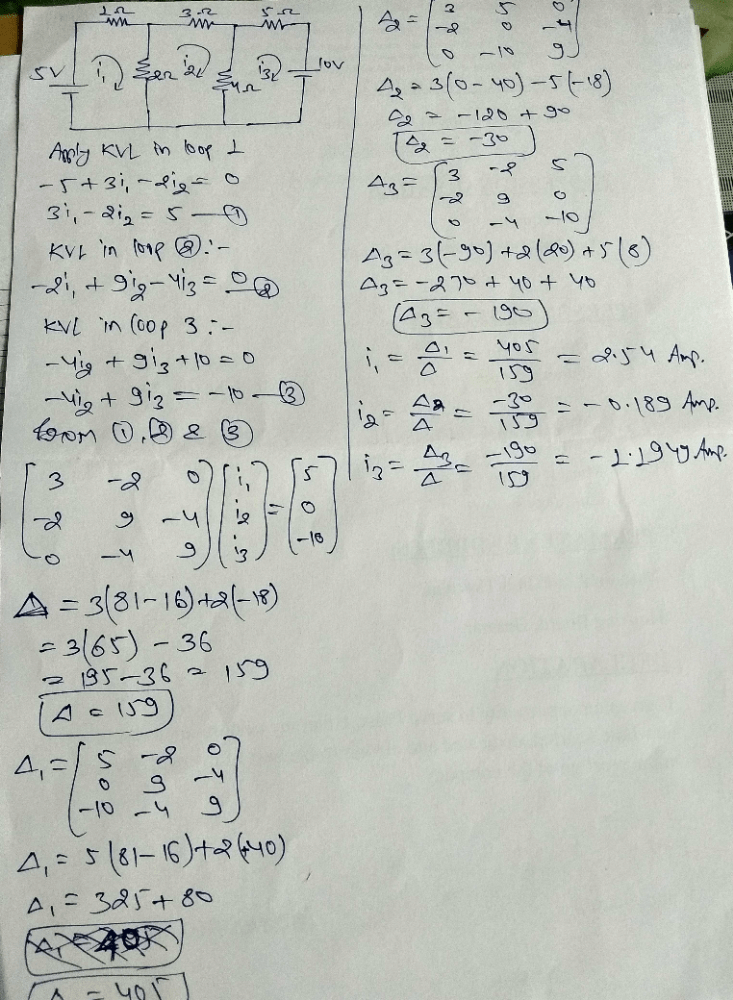 1Ω 3Ω 5Ω
5V i₁ 2Ω i₂ 4Ω i₃ 10V
Apply KVL in loop 1
-5 + 3i₁ - 2i₂ = 0
3i₁ - 2i₂ = 5 — ①
KVL in loop ② :-
-2i₁ + 9i₂ - 4i₃ = 0 — ②
KVL in loop 3 :-
-4i₂ + 9i₃ + 10 = 0
-4i₂ + 9i₃ = -10 — ③
from ①, ② & ③
[3 -2 0] [i₁] = [5]
[-2 9 -4] [i₂] [0]
[0 -4 9] [i₃] [-10]
Δ = 3(81-16)+2(-18)
= 3(65) - 36
= 195-36 = 159
Δ = 159
Δ₁ = [5 -2 0]
[0 9 -4]
[-10 -4 9]
Δ₁ = 5(81-16)+2(-40)
Δ₁ = 325 + 80
Δ₁ = 405
Δ₁ = 405
Δ₂ = [3 5 0]
[-2 0 -4]
[0 -10 9]
Δ₂ = 3(0-40) - 5(-18)
Δ₂ = -120 + 90
Δ₂ = -30
Δ₃ = [3 -2 5]
[-2 9 0]
[0 -4 -10]
Δ₃ = 3(-90)+2(20)+5(8)
Δ₃ = -270 + 40 + 40
Δ₃ = -190
i₁ = Δ₁/Δ = 405/159 = 2.54 Amp.
i₂ = Δ₂/Δ = -30/159 = -0.189 Amp.
i₃ = Δ₃/Δ = -190/159 = -1.1949 Amp.